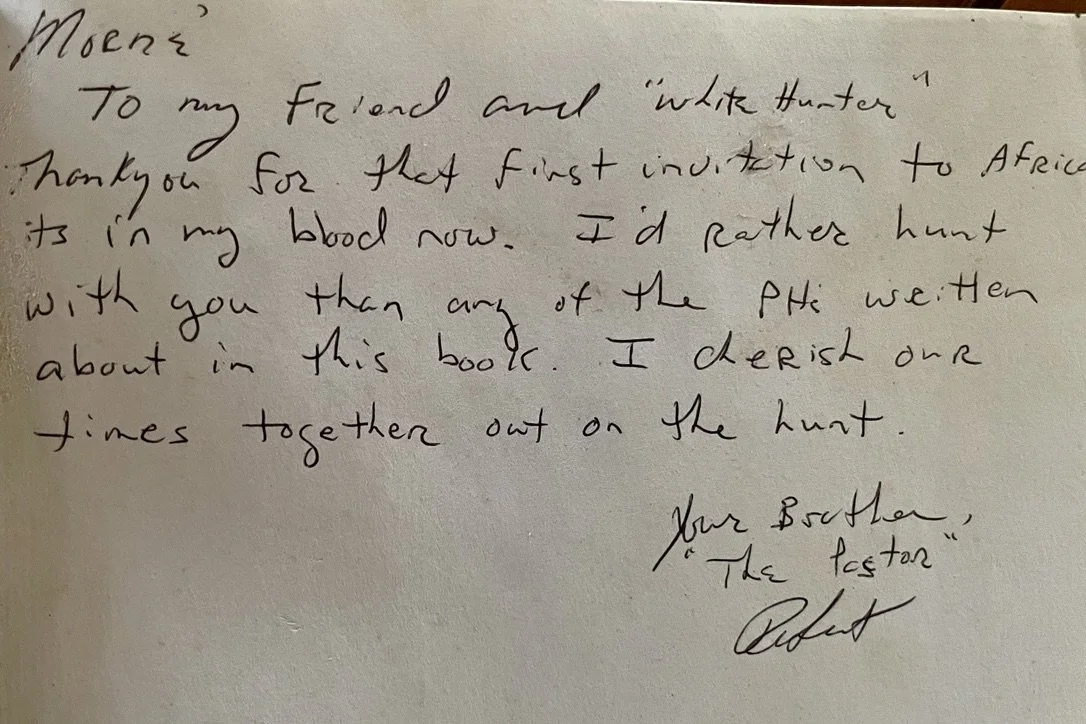 To my Friend and "White Hunter"
Thankyou for that first invitation to Africa
its in my blood now. I'd rather hunt
with you than any of the PHs written
about in this book. I cherish our
times together out on the hunt.
Your Brother,
"The Pastor"